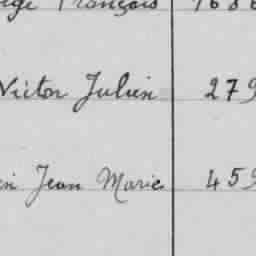 François
Victor Julien 279
Jean Marie 459